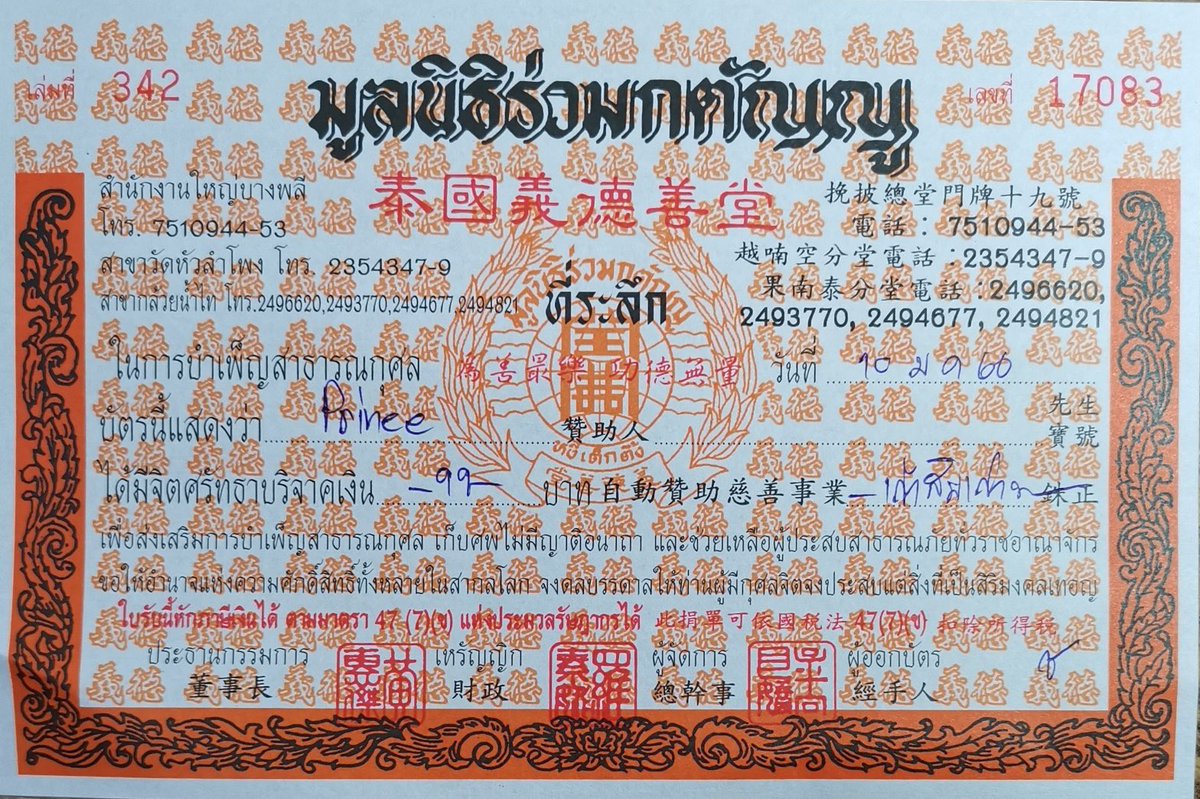 เล่มที่ 342
เลขที่ 17083
มูลนิธิร่วมกตัญญู
泰國義德善堂
สำนักงานใหญ่บางพลี
โทร. 7510944-53
สาขาวัดหัวลำโพง โทร. 2354347-9
สาขากล้วยน้ำไท โทร.2496620,2493770,2494677,2494821
挽披總堂門牌十九號
電話：7510944-53
越喃空分堂電話：2354347-9
果南泰分堂電話：2496620,
2493770, 2494677, 2494821
มูลนิธิร่วมกตัญญู
ที่ระลึก
ในการบำเพ็ญสาธารณกุศล 為善最樂 功德無量 วันที่ 10 ม ค 66
บัตรนี้แสดงว่า Prince 贊助人 先生 寶號
หงี่เต็กตึ๊ง
ได้มีจิตศรัทธาบริจาคเงิน -99- บาท 自動贊助慈善事業 銖正
เพื่อส่งเสริมการบำเพ็ญสาธารณกุศล เก็บศพไม่มีญาติอนาถา และช่วยเหลือผู้ประสบสาธารณภัยทั่วราชอาณาจักร
ขอให้อำนาจแห่งความศักดิ์สิทธิ์ทั้งหลายในสากลโลก จงดลบรรดาลให้ท่านผู้มีกุศลจิตจงประสบแต่สิ่งที่เป็นสิริมงคลเทอญ
ใบรับนี้หักภาษีเงินได้ ตามมาตรา 47 (7)(ข) แห่งประมวลรัษฎากรได้ 此捐單可依國稅法 47(7)(ข) 扣除所得稅
ประธานกรรมการ เหรัญญิก ผู้จัดการ ผู้ออกบัตร
董事長 財政 總幹事 經手人